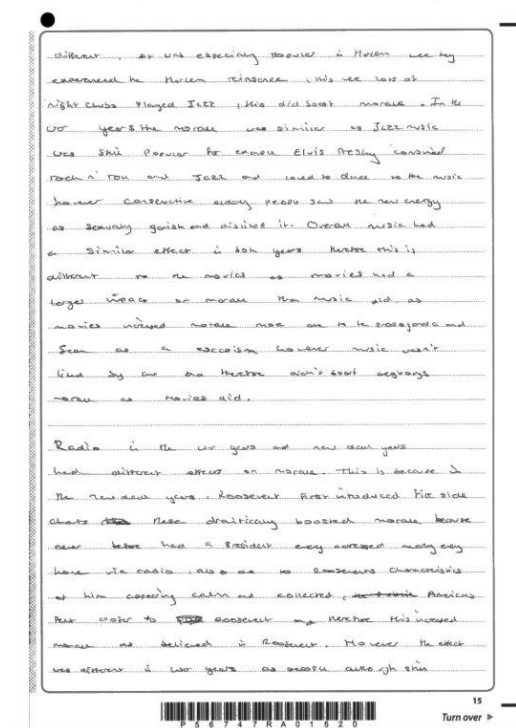 different, it was especially popular in Harlem were they
experienced the Harlem reinsonce, this wee lots of
night clubs Played Jazz, this did boost morale. In the
war years the morale was similar as Jazz music
was still Popular for example Elvis Presley consined
rock n' roll and Jazz and loved to dance to the music
however conservative elderly people saw the new energy
as sexually garish and disliked it. Overall music had
a similar effect in both years therefore this is
different to the movies as movies had a
larger impact on morale than music did. as
movies increased morale more due to the propaganda and
Seen as a esccoism however music wasn't
liked by all and therefore didn't boost
morale as movies did.
Radio in the war years and new deal years
had different effects on morale. This is because in
the new deal years. Roosevelt first introduced fire side
chats these drastically boosted morale because
never before had a President every adressed
home via radio, also due to Roosevelts characteristics
of him calm and collected, Americas
felt closer to Roosevelt and therefore this increased
morale as believed in Roosevelt. However the effect
was different in war years as people although still
15
Turn over
P56747RA01520